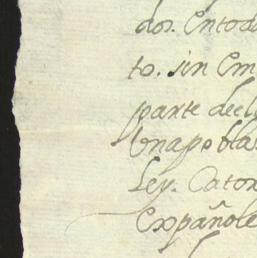 dos. Entodo
to. sin Em
parte decl
Una pobla
Ley. Cator
Española